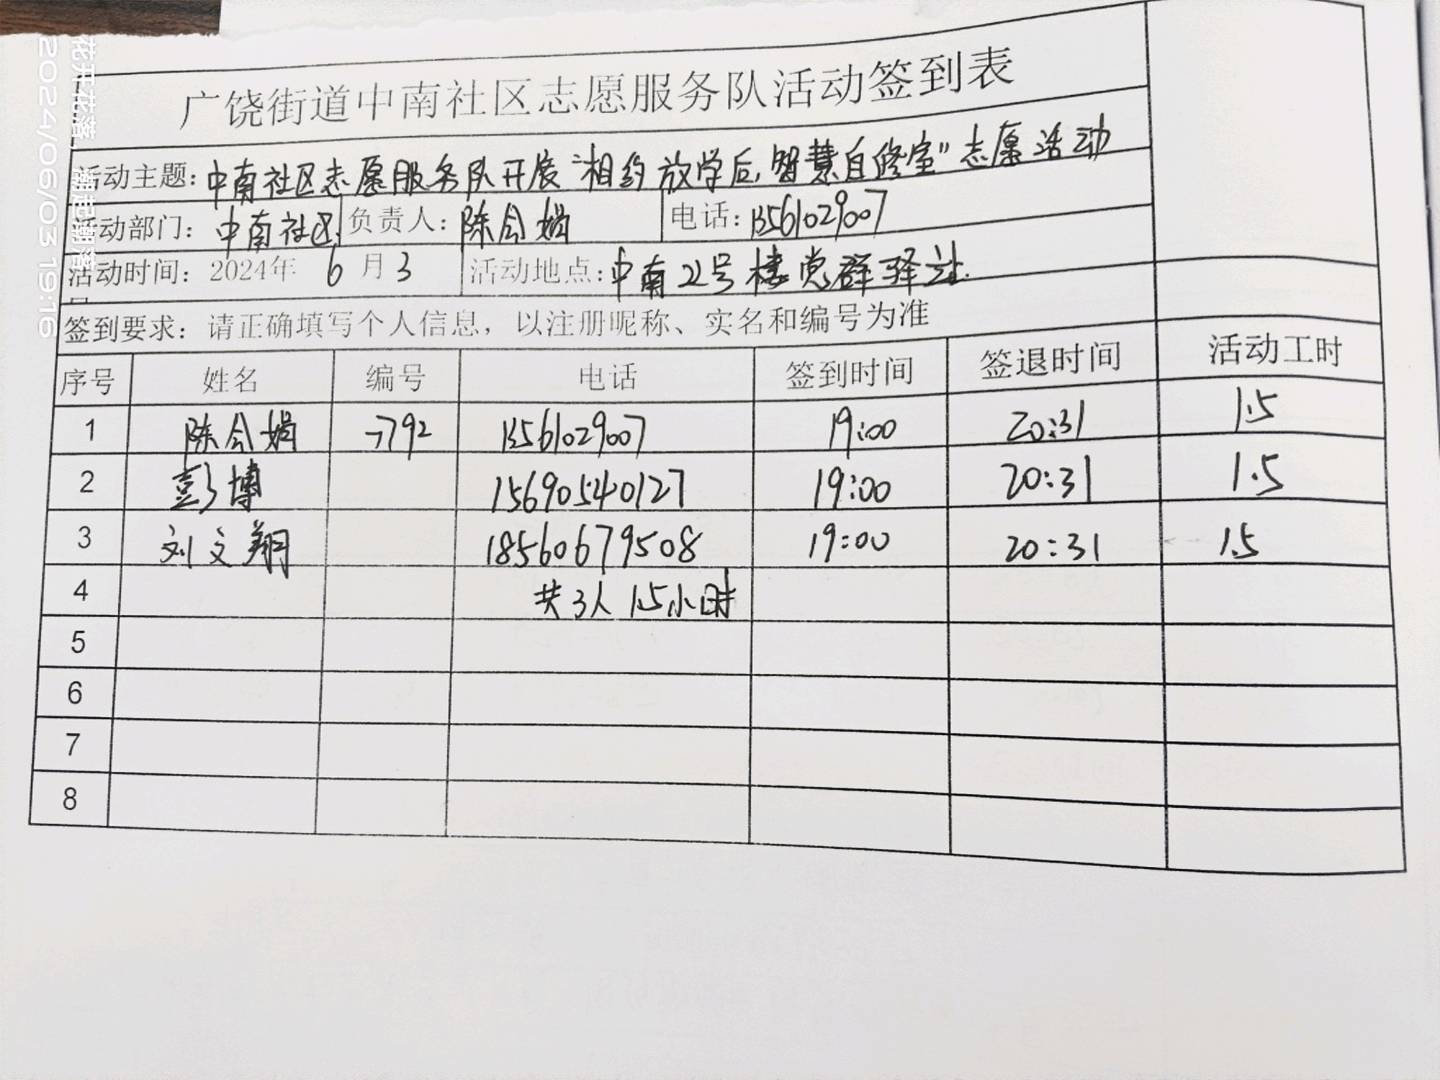 广饶街道中南社区志愿服务队活动签到表
活动主题：中南社区志愿服务队开展“相约放学后，智慧自修室”志愿活动
活动部门：中南社区 负责人：陈令娟 电话：13561029007
活动时间：2024年 6月3 活动地点：中南22号楼党群驿站.
签到要求：请正确填写个人信息，以注册昵称、实名和编号为准
序号 姓名 编号 电话 签到时间 签退时间 活动工时
1 陈令娟 -7792 13561029007 19:00 20:31 1.5
2 彭博 15690540127 19:00 20:31 1.5
3 刘文翔 18560679508 19:00 20:31 1.5
4 共3人 1.5小时
5
6
7
8
花开花落_潮起潮落
2024/06/03 19:16